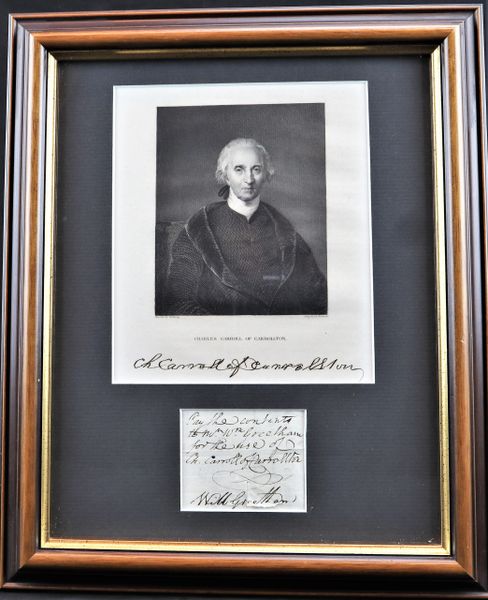 CHARLES CARROLL OF CARROLLTON.
Ch Carroll of Carrollton
Pay the contents
to Mr Wm Greetham
for the use of
Ch. Carroll of Carrollton
Will Greetham